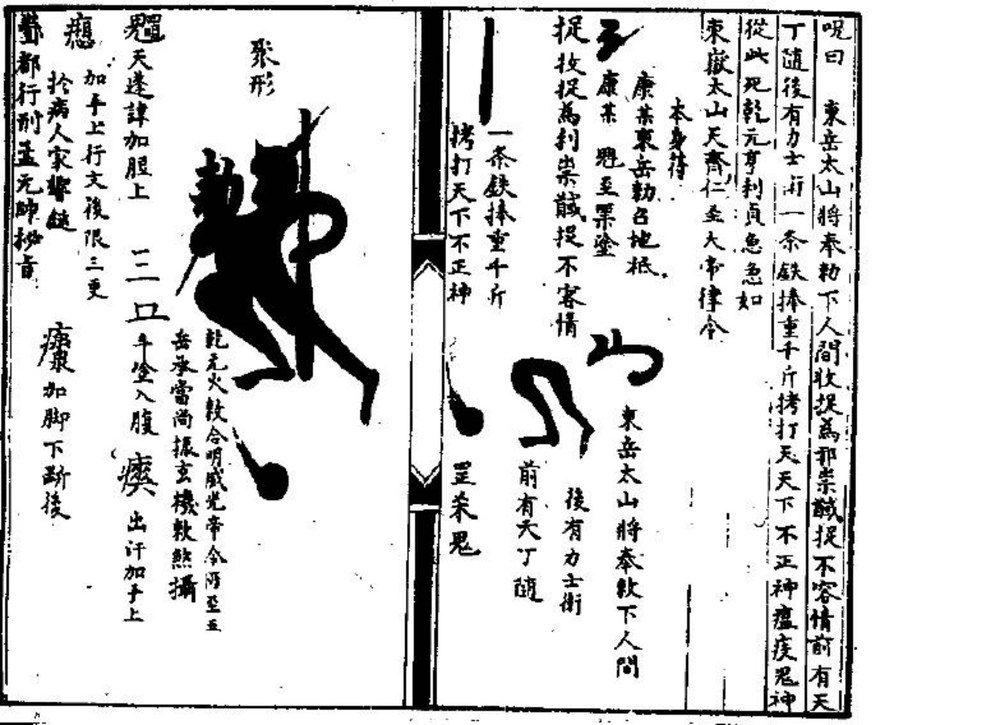 呪曰 東岳太山將奉勅下人間收捉為邪祟馘捉不容情前有天
丁隨後有力士行一条鉄捧重千斤拷打天天下不正神瘟疫鬼神
從此死乾元亨利貞急急如
東嶽太山天齊仁圣大帝律令
本身符
康某東岳勅召地柢
康某 至 塗
捉收捉為利祟馘捉不容情
一条鉄捧重千斤
拷打天下不正神
山
東岳太山將奉敕下人間
後有力士衛
前有天丁隨
罡采鬼
聚形
勅
乾元火敕合明威光帝令 至五
岳承當尚振玄機敕煞攝
天蓬諱加服上
斗塗入腹
出汗加手上
加手上行文後限三更
於病人家 鎚
加脚下斷後
酆都行刑孟元帥秘音